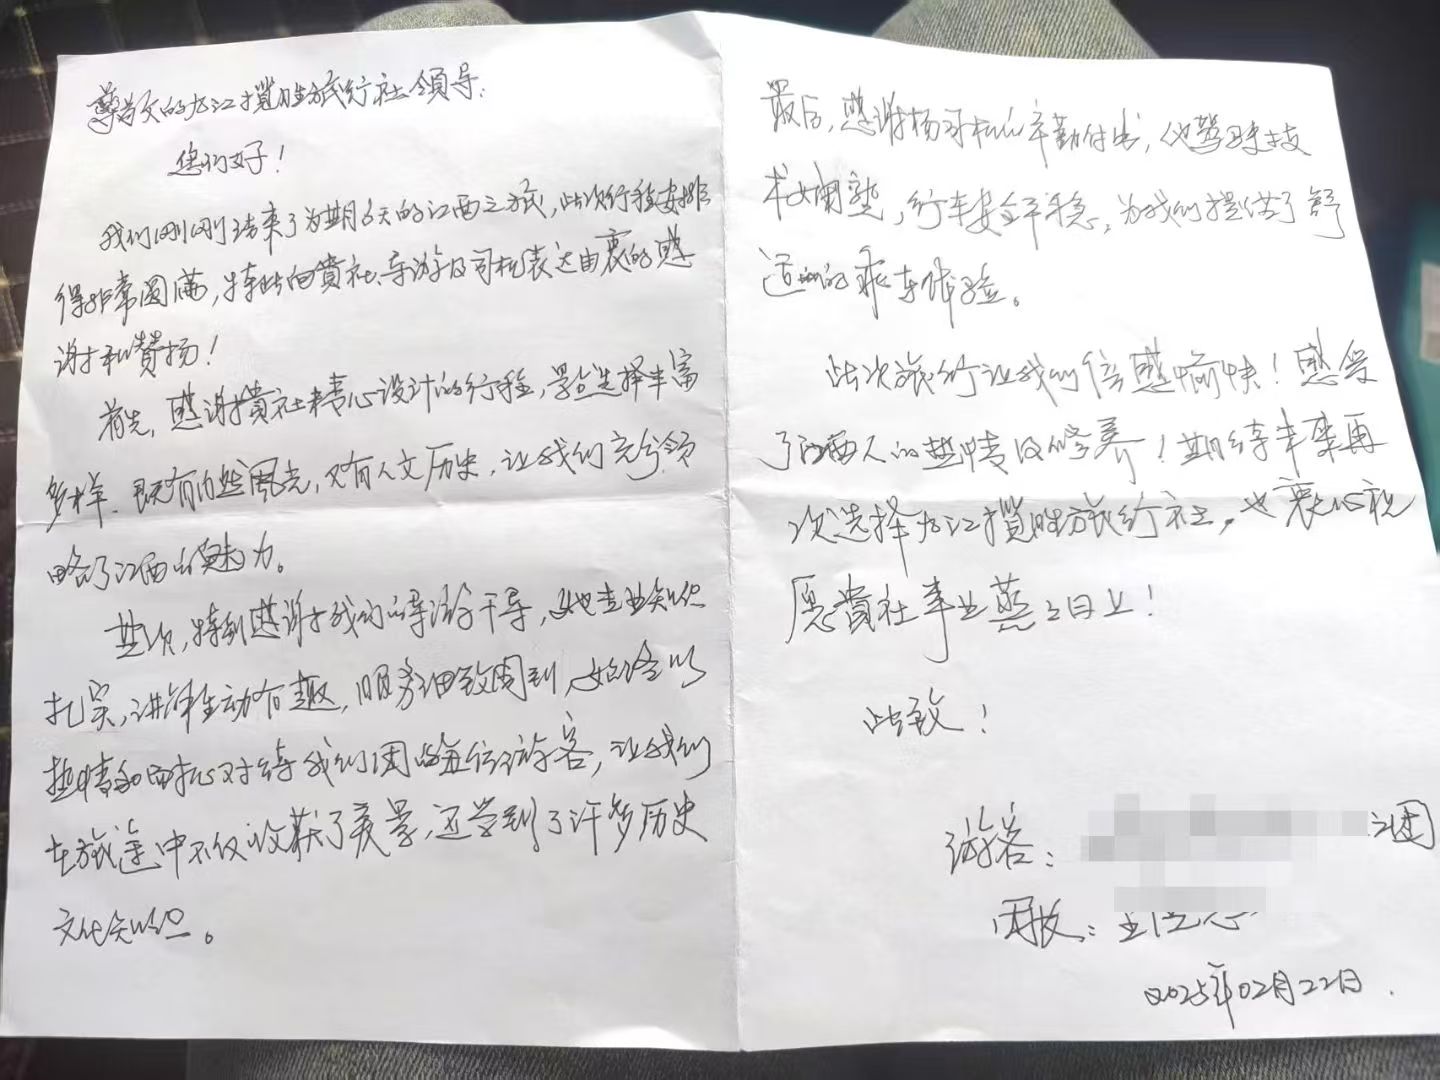 尊敬的九江揽胜旅行社领导：
您们好！
我们刚刚结束了为期6天的江西之旅，此次行程安排
得非常圆满，特此向贵社、导游及司机表达由衷的感
谢和赞扬！
首先，感谢贵社精心设计的行程，景点选择丰富
多样、既有自然风光，又有人文历史，让我们充分领
略了江西的魅力。
其次，特别感谢我们的导游干导，她专业知识
扎实，讲解生动有趣，服务细致周到，始终以
热情和耐心对待我们团的每位游客，让我们
在旅途中不仅收获了美景，还学到了许多历史
文化知识。
最后，感谢杨司机的辛勤付出，他驾驶技
术娴熟，行车安全平稳，为我们提供了舒
适的乘车体验。
此次旅行让我们倍感愉快！感受
了江西人的热情及修养！期待未来再
次选择九江揽胜旅行社，也衷心祝
愿贵社事业蒸蒸日上！
此致！
游客：团
2025年02月22日.